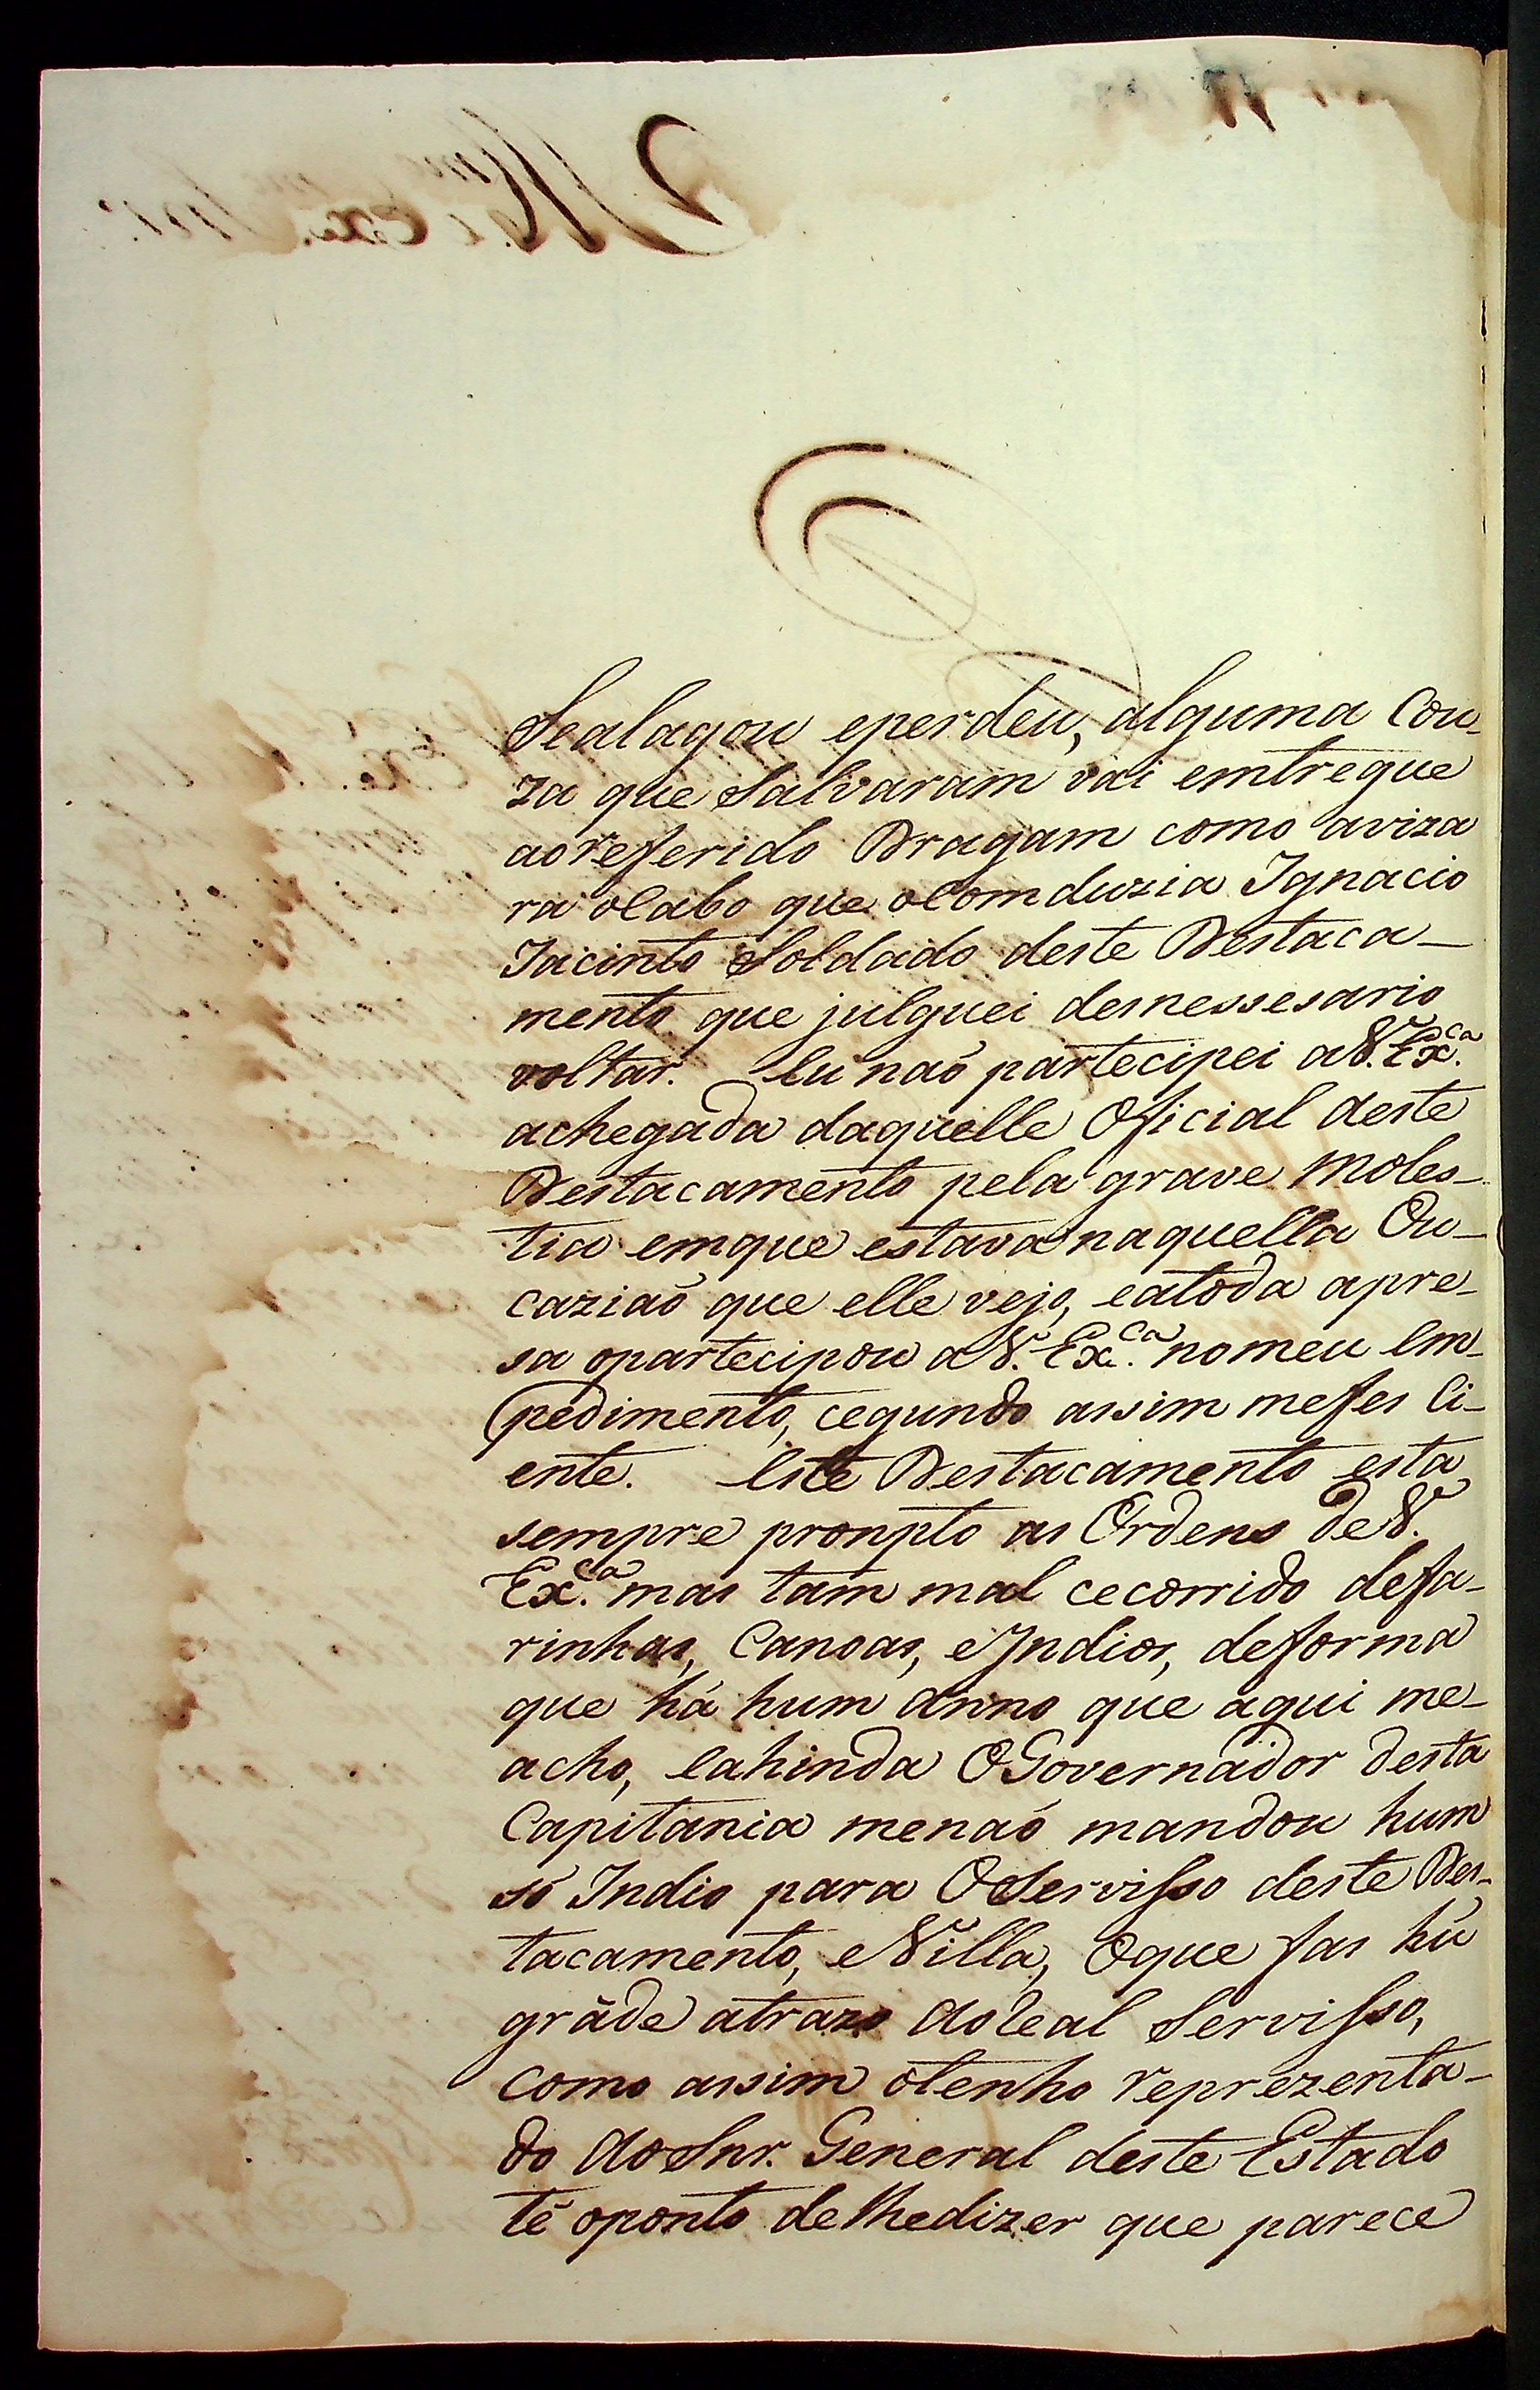 Sealagou eperdeu, alguma Cou-
za que Salvaram vai emtregue
aoreferido Dragam como aviza
ra oCabo que oComduzia Ignacio
Jacinto Soldado deste Destaca-
mento que julguei desnessesario
voltar. Eu naó partecipei aV. Ex.ca
achegada daquelle Oficial deste
Destacamento pela grave Moles-
tia emque estava naquella Ou-
caziaó que elle vejo, eatoda apre-
sa opartecipou aV. Ex.ca nomeu Em-
pedimento, cegundo assim mefes Ci-
ente. Este Destacamento esta
sempre pronpto as Ordens deV.
Ex.ca mas tam mal cecorrido defa-
rinhas, Canoas, eIndios, deforma
que há hum anno que aqui me-
acho, Eahinda OGovernador desta
Capitania menaó mandou hum
só Indio para OServisso deste Des-
tacamento, eVilla, Oque fas hú
grãde atrazo AoReal Servisso,
como assim otenho reprezenta-
do AoSnr. General deste Estado
té oponto delhedizer que parece